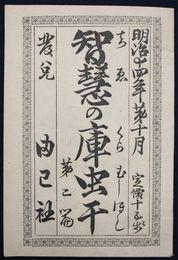 明治十四年第十月
定價十五銭
ちゑ くらむしほし
智慧の庫虫干
第二篇
発兌 由己社